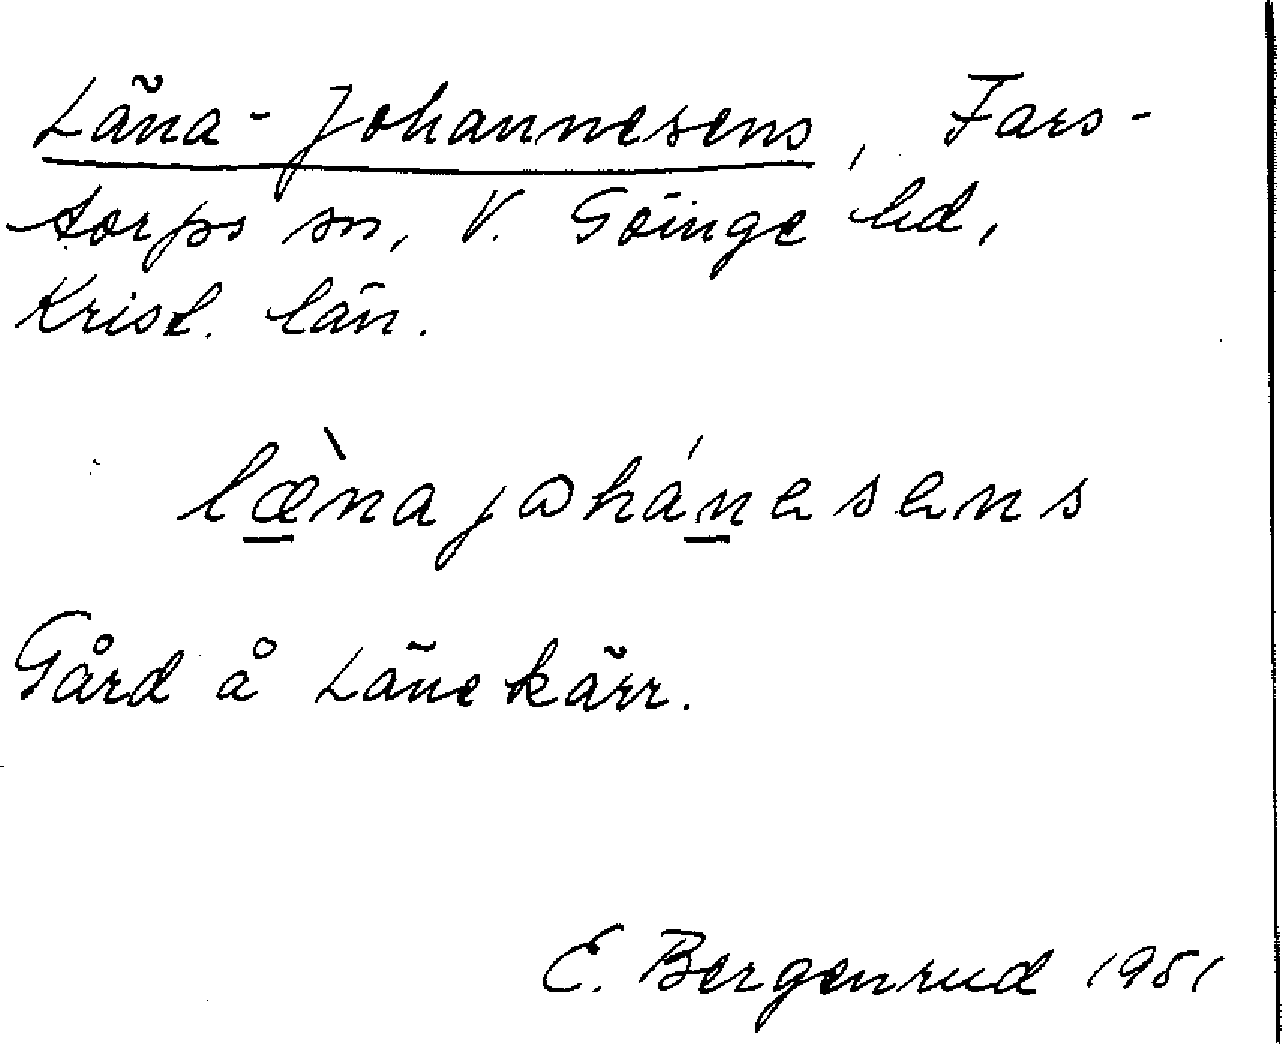 Läna-Johannesens, Fars-
torps sn, V. Göinge hd,
Krist. län.
læ̀na jɷhánesens
Gård å Länekärr.
E. Bergenrud 1951